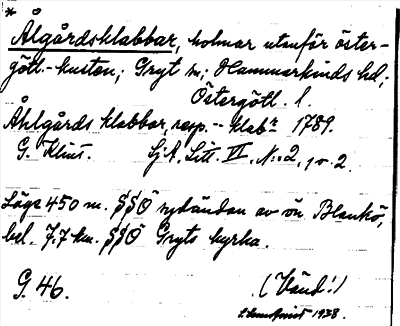 *
Ålgårdsklabbar, holmar utanför öster-
götl.-kusten; Gryt sn; Hammarkinds hd;
Östergötl. l.
Åhlgårds klabbar, resp. - klabr 1789.
G. Klint. Sj A. Litt. II. No: 2, 1 o. 2.
Läge 450 m. SSÖ sydändan av ön Blankö,
bel. 7.7 km. SSÖ Gryts kyrka.
G. 46. (Vänd!)
1938.